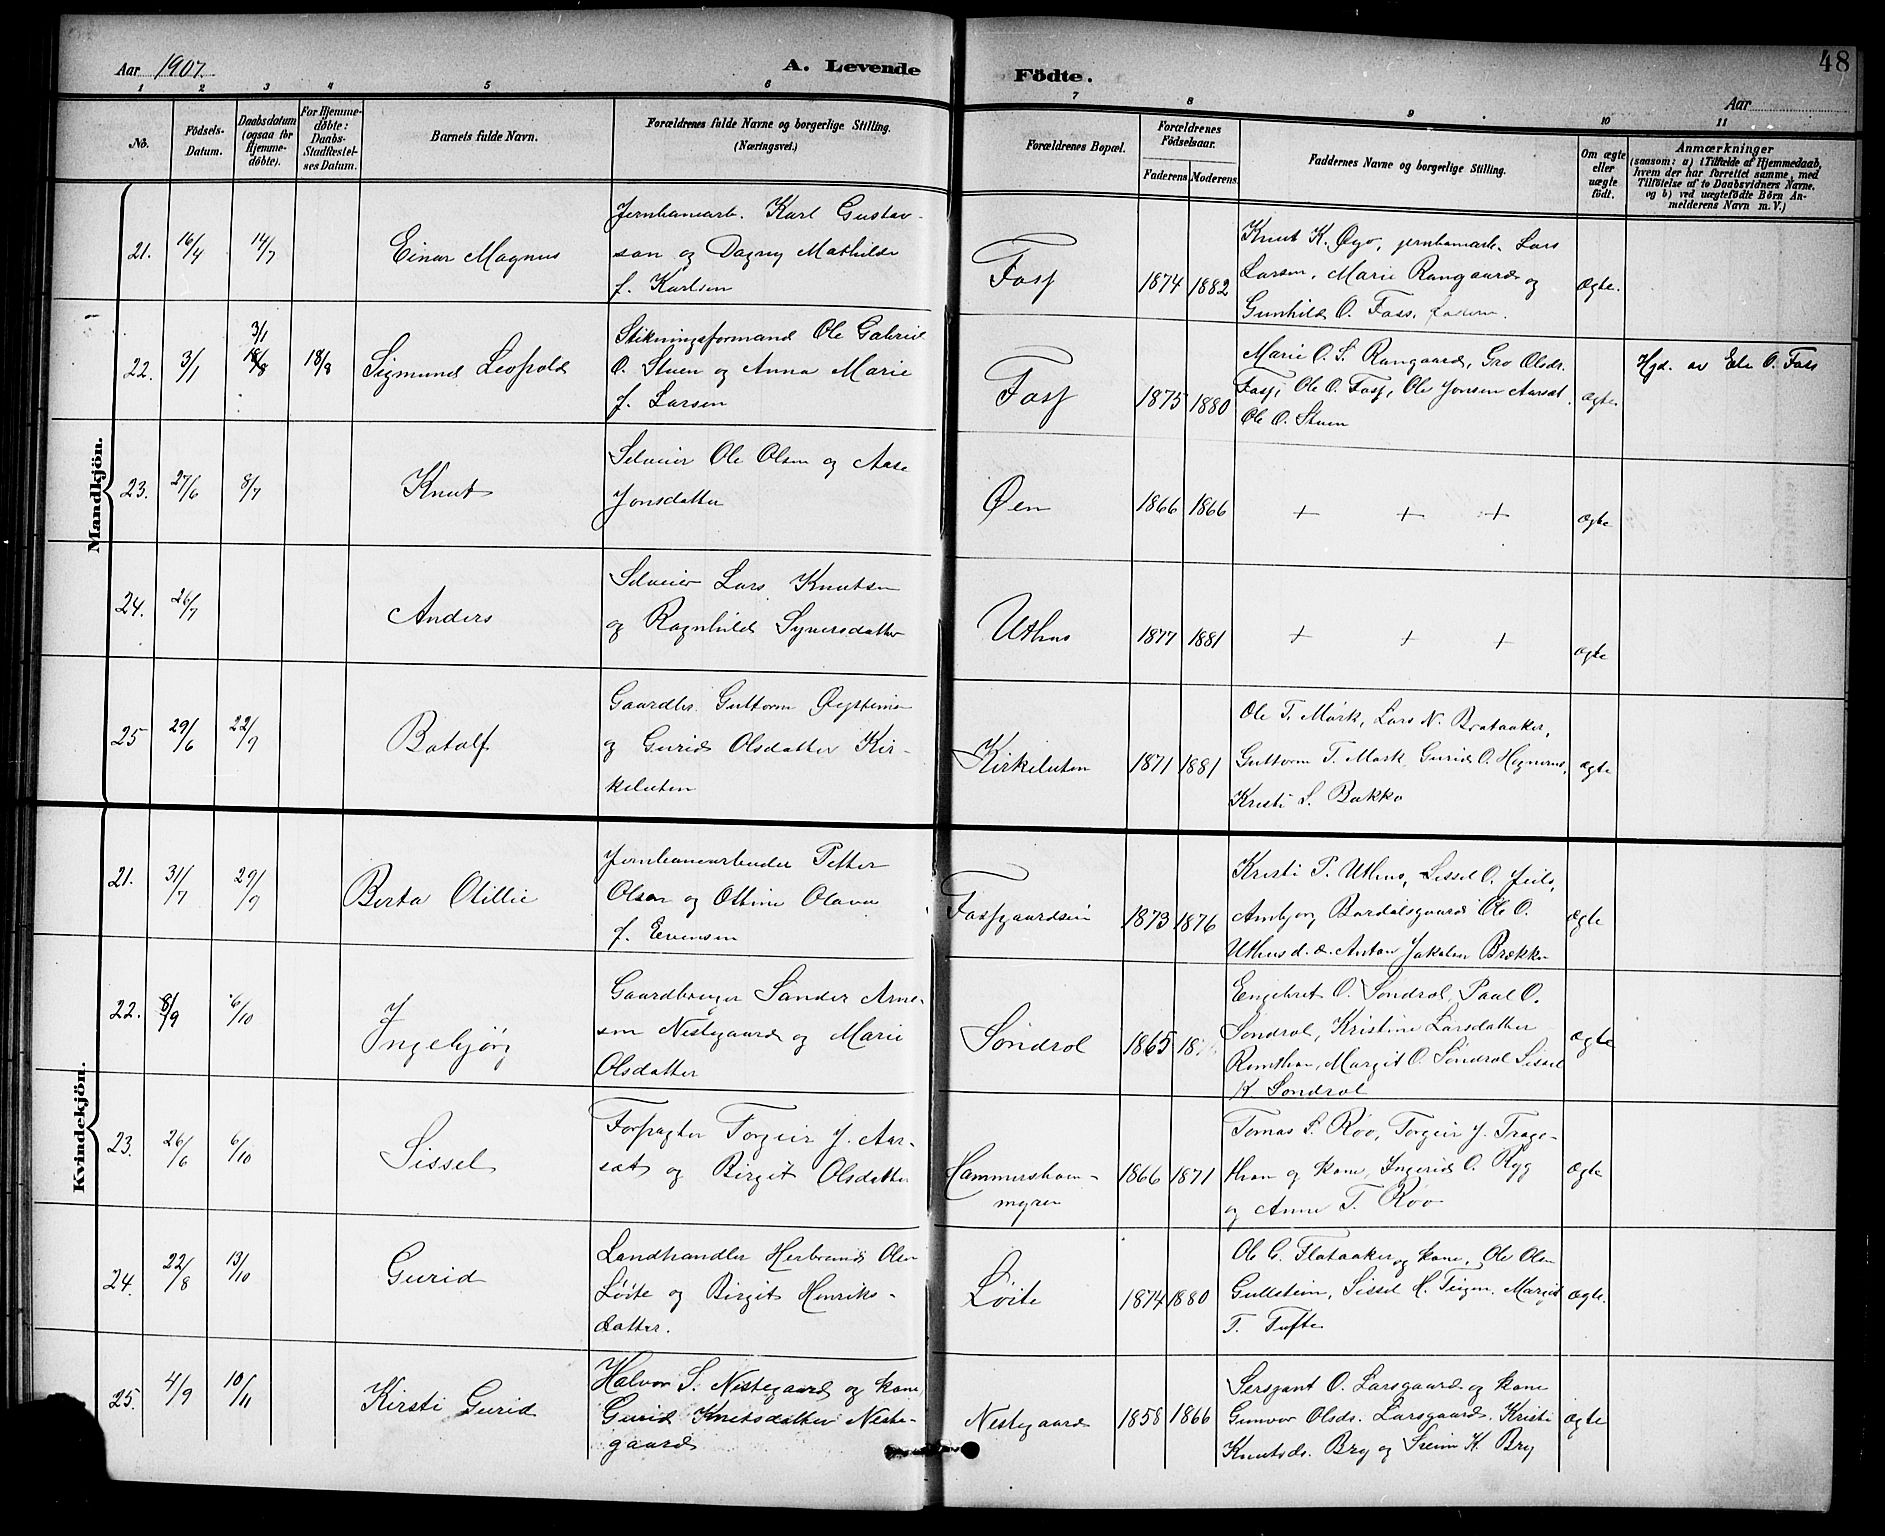 Aar 1907.
A. Levende
Födte.
48
Aar
1 2 3 4 5 6 7 8 9 10 11
No.
Födsels-
Datum.
Daabsdatum
(ogsaa for
Hjemme-
døbte).
For Hjemme-
døbte:
Daabs-
Stadfæstel-
ses Datum.
Barnets fulde Navn.
Forældrenes fulde Navne og borgerlige Stilling.
(Næringsvei.)
Forældrenes Bopæl.
Forældrenes
Födselsaar.
Faderens Moderens
Faddernes Navne og borgerlige Stilling.
Om ægte
eller
uægte
födt.
Anmærkninger
(saasom: a) i Tilfælde af Hjemmedaab,
hvem der har forrettet samme, med
Tilföielse af to Daabsvidners Navne,
og b) ved uægtefödte Börn An-
melderens Navn m. V.)
Mandkjön.
21. 16/4 14/7
Einar Magnus
Jernbanearb. Karl Gustav-
san og Dagny Mathilde
f. Karlsen
Fosf
1874 1882
Knut K. Øyo, jernbanearb. Lars
Larsen, Marie Rangaard og
Gunhild O. Foss,
Ægte.
22. 3/1 3/1
18/8 18/8
Sigmund Leopold
Stikningsformand Ole Gabriel
O. Stuen og Anna Marie
f. Larsen
Fosf
1875 1880
Marie O. S. Rangaard, Gro Olsdr.
Fosf, Ole O. Fosf, Ole Jonsen Aarset
Ole O. Stuen
ægte
Hjd. av Ele O. Foss
23. 27/6 8/7
Knut
Selveier Ole Olsen og Aase
Jonsdatter
Øen
1866 1866
+ + +
ægte
24. 26/7
Anders
Selveier Lars Knutsen
og Ragnhild Syversdatter
Uthus
1877 1881
+ + +
ægte
25 29/6 22/9
Botolf
Gaardbr. Guttorm Øystens
og Gurid Olsdatter Kir-
keluten
Kirkeluten
1871 1881
Ole T. Mørk, Lars N. Brataaker,
Guttorm T. Mørk, Gurid O. Hegnerus,
Kristi S. Bakko
ægte
Kvindekjön.
21. 31/7 29/9
Berta Otillie
Jernbanearbeider Petter
Olsen og Ottine Olava
f. Evensen
Fosfgaardseie
1873 1876
Kristi P. Uthus, Sissel O. Jeilo,
Ambjørg Bardalsgaard Ole O.
Uthus d. æ. Anton Jakobsen Brekke
Ægte
22. 8/9 6/10
Ingebjørg
Gaardbruger Sander Arne-
sen Nestegaard og Marie
Olsdatter
Sóndrol
1865 18
Engebret O. Sondrol, Paal O.
Sondrol, Kristine Larsdatter
Romthon, Margit O. Sóndrol Sissel
K Sondrol
Ægte
23. 26/6 6/10
Sissel
Forpagter Torgeir J. Aar-
set og Birgit Olsdatter
Hammershaug-
myren
1866 1871
Tomas S. Roo, Torgeir J. Trage-
thon og kone, Ingerid O. Rygg
og Anne T. Roo
Ægte
24. 22/8 13/10
Gurid
Landhandler Herbrand Olsen
Lóite og Birgit Henriks-
datter.
Lóite
1874 1880
Ole G. Flataaker og kone, Ole Olsen
Gullstein, Sissel H. Teigen, Margit
T. Tufte
Ægte.
25. 4/9 10/11
Kirsti Gurid
Halvor S. Nestegaard og kone
Gurid Knutsdatter Neste-
gaard
Nestegaard
1858 1866
Sersjant O. Larsgaard og kone
Gunvor Olsdr. Larsgaard, Kristi
Knutsdr. Bry og Svein K. Bry
Ægte